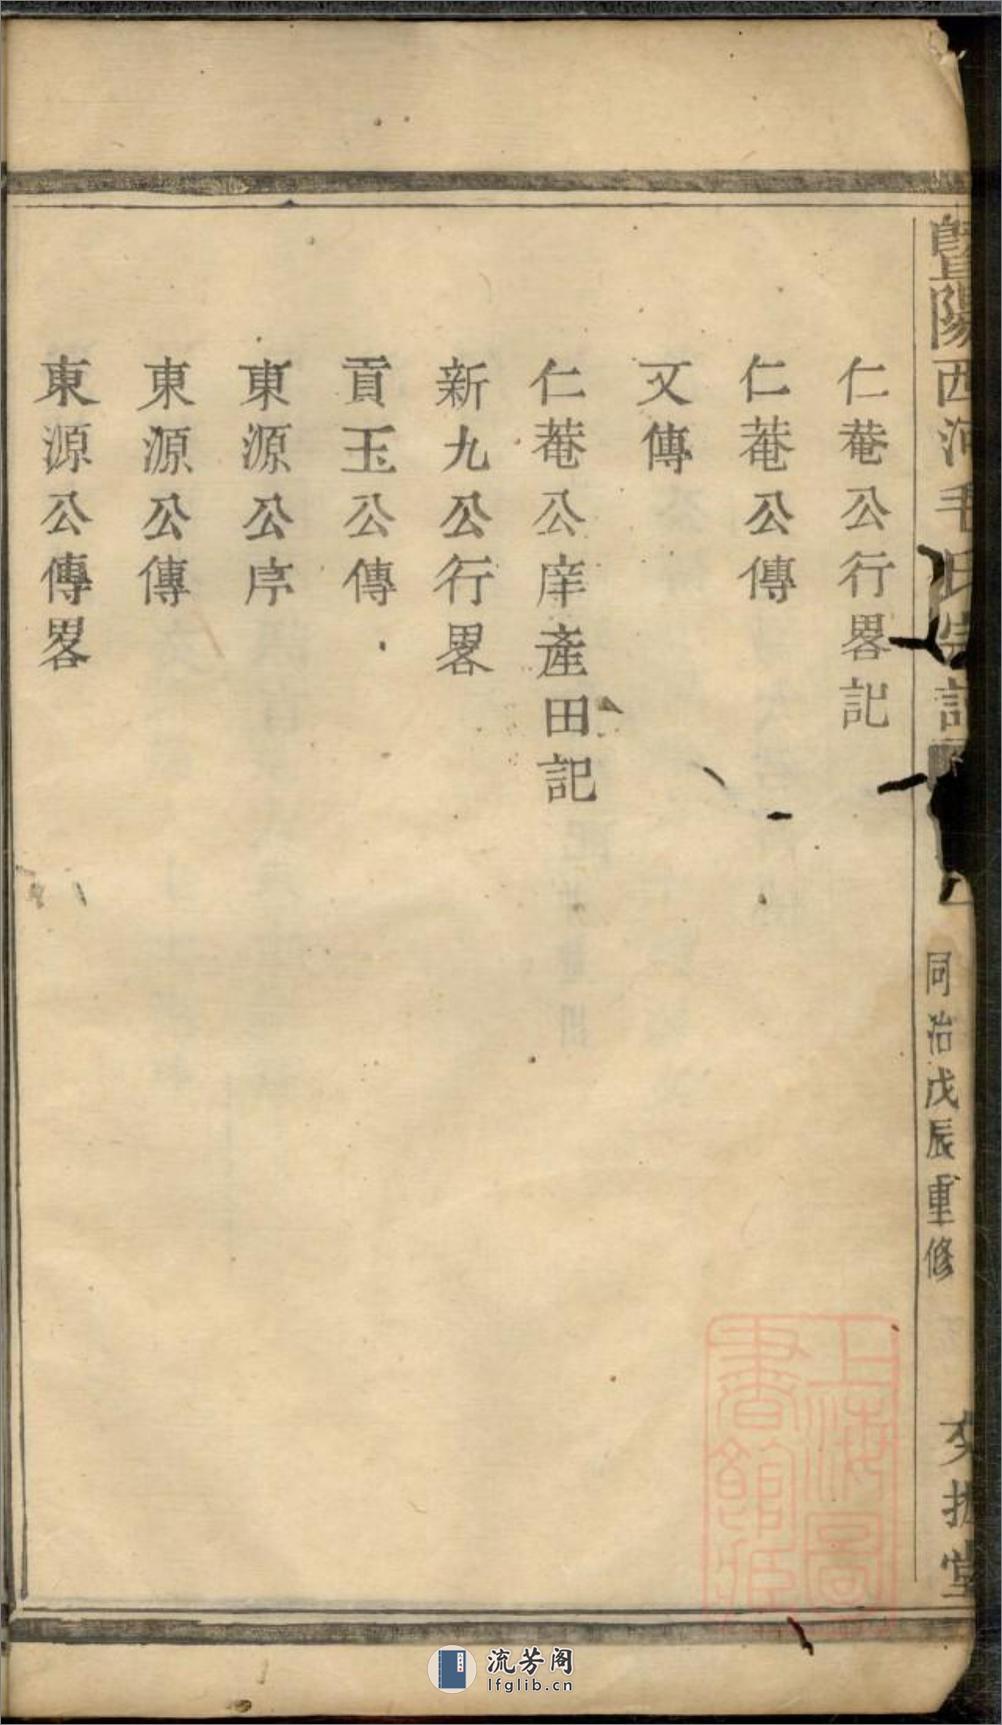 暨陽西河毛氏宗譜
同治戊辰重修
文振堂
仁菴公行畧記
仁菴公傳
又傳
仁菴公庠產田記
新九公行畧
貢玉公傳
東源公序
東源公傳
東源公傳畧
上海圖
書館藏
流芳阁
lfglib.cn